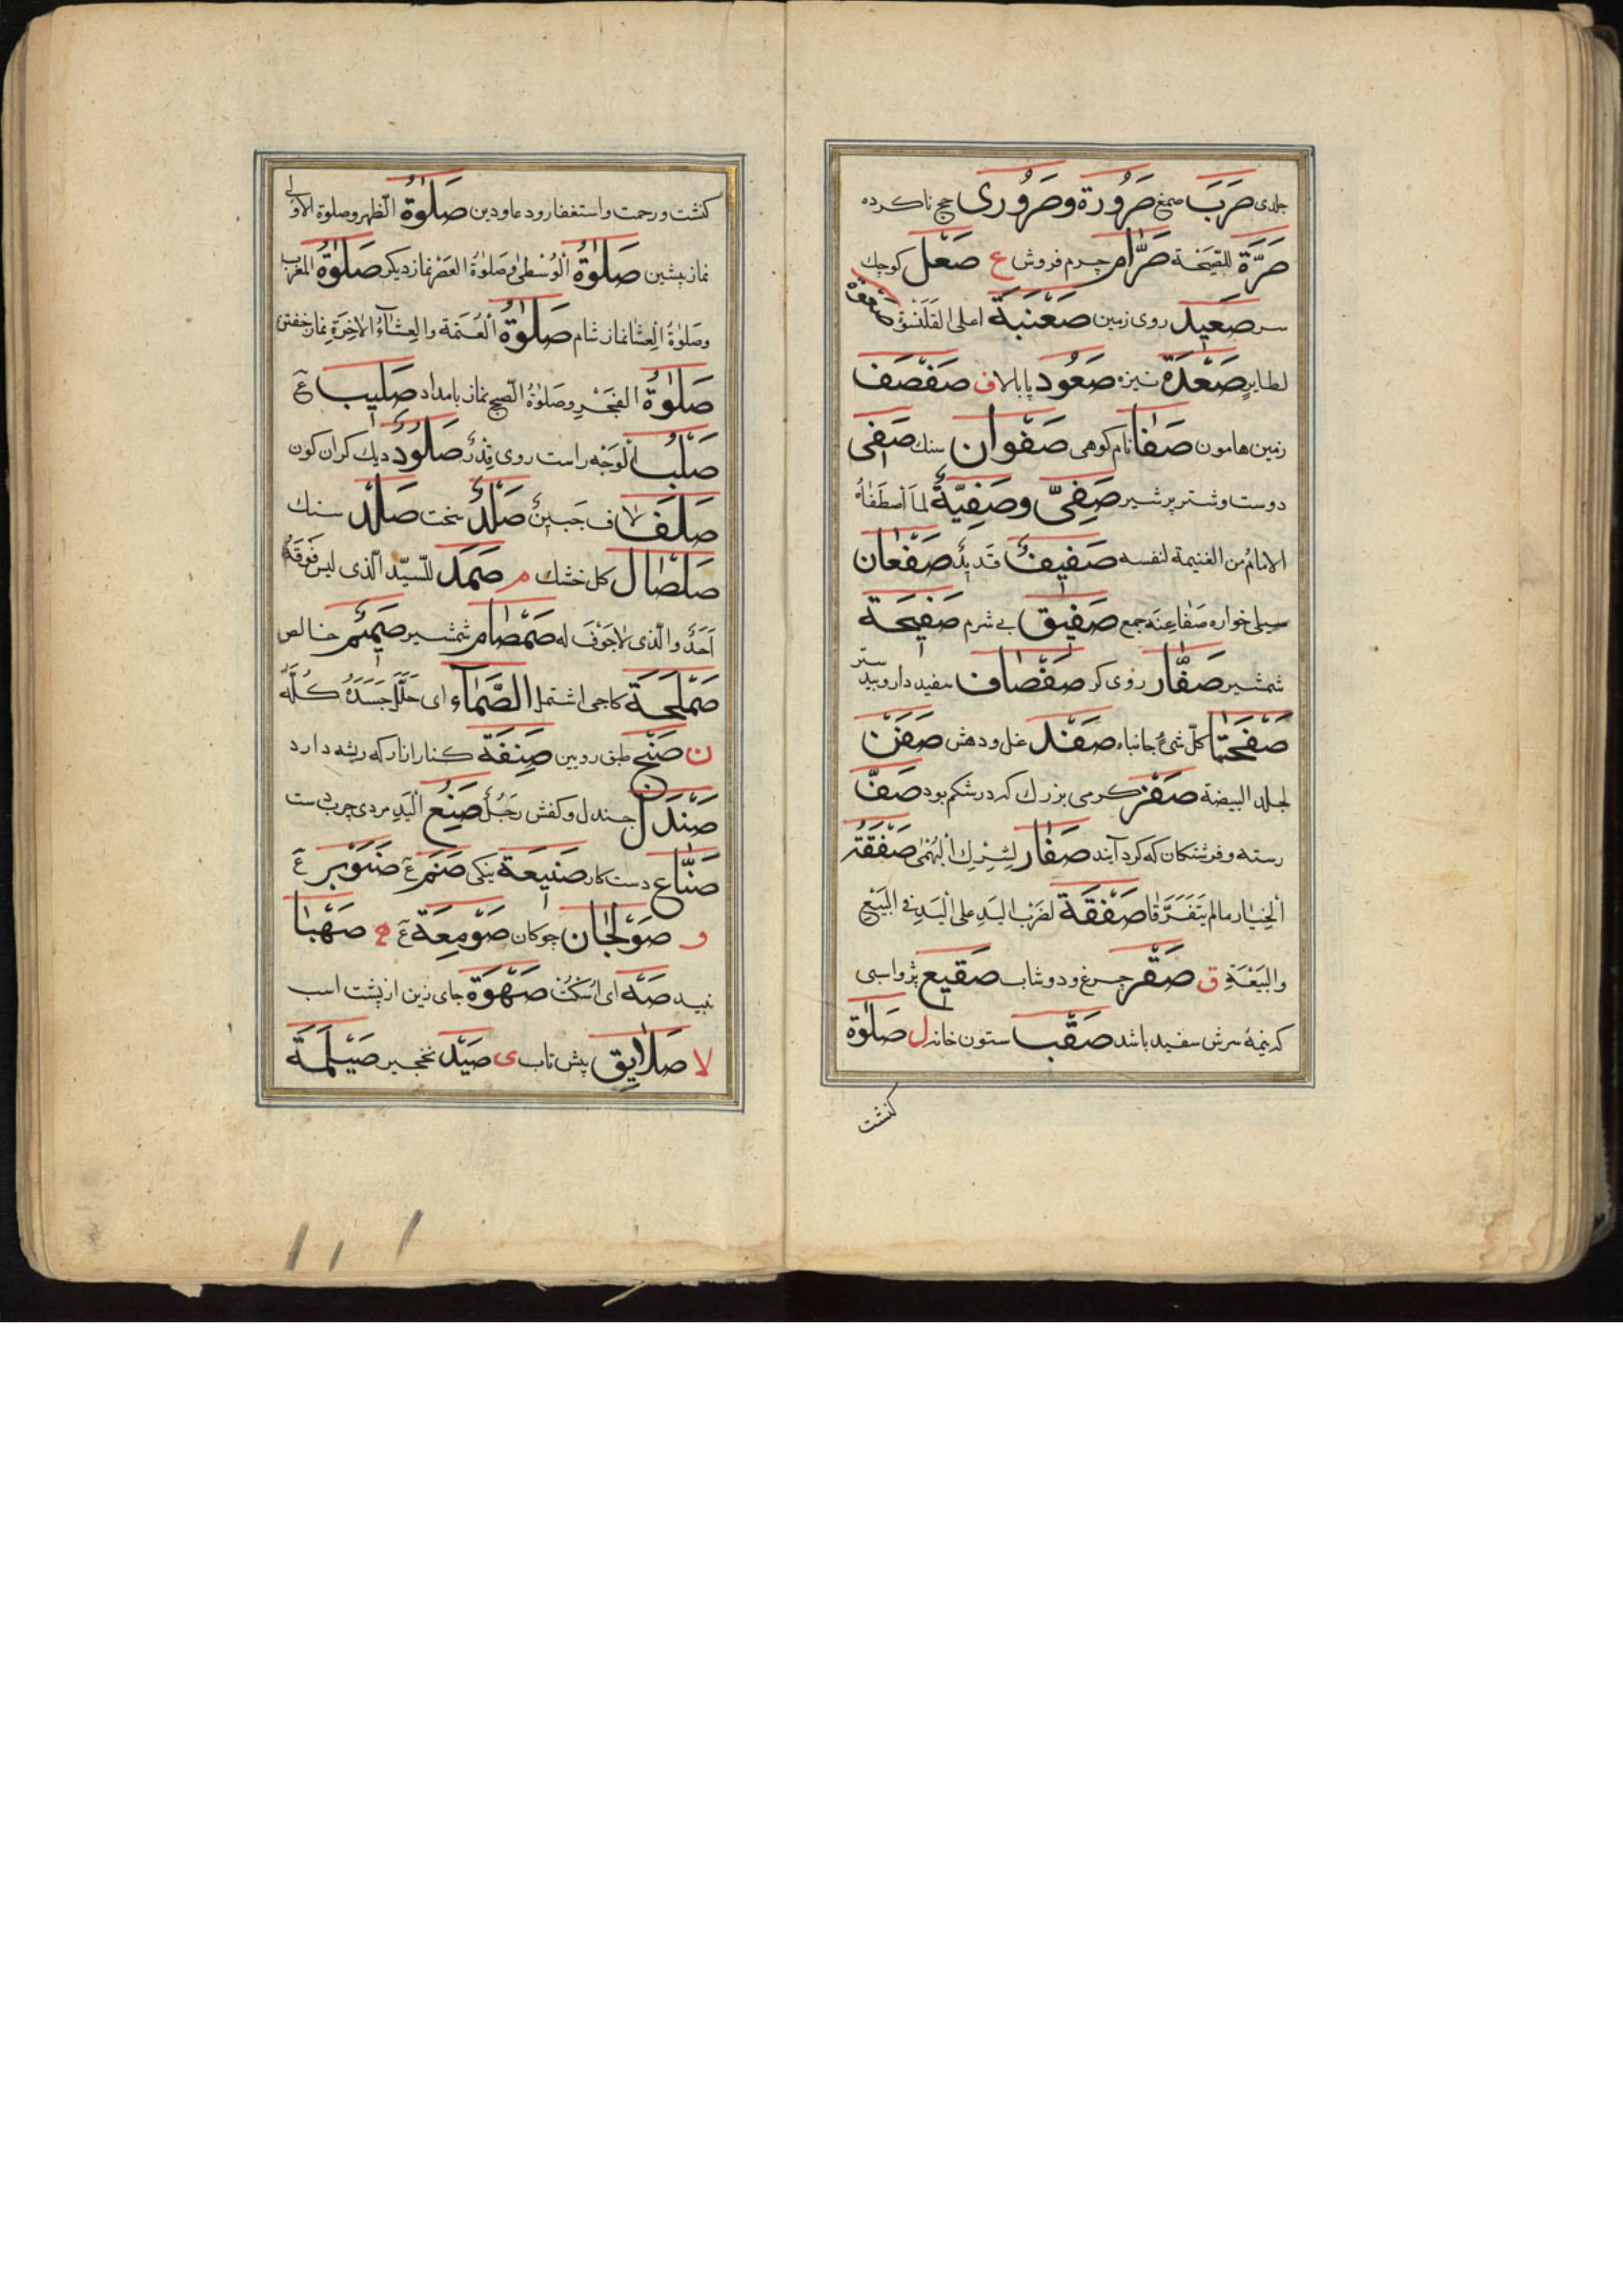 جلدی صَرَبَ صمغ صَرُورَة وصَرُوری حج ناکرده
صَرَّة للصَّیحَة صَرّام چرم فروش ع صَعْل کوچک
سر صَعید روی زمین صَعْنَبَة اعلی القَلَنسُوَة صَعْوَه
لطایر صَعْدَة نیزه صَعُود پا بالا ف صَفْصَف
زمین هامون صَفا نام کوهی صَفْوان سنک صَفی
دوست وشتر پر شیر صَفِیّ وصَفِیَّةٌ لما اصْطَفاهُ
الامامُ من الغنیمة لنفسه صَفیفٌ قَدیدٌ صَفْعان
سیلی خواره صَفاعِنَه جمع صَفیق بی شرم صَفیحَة
شمشیر صَفّار روی کر صَفْصاف سفیددار وبید ستر
صَفْحَتا کلّ شیءٍ جانباه صَفْد غل ودهش صَفَن
لجلد البیضة صَفَر کرمی بزرك که در شکم بود صَفّ
رسته وفرشتکان که کرد آیند صَفار لِشِبْرِك البُهْمٰی صَفْقَة
الخِیار مالم یَتَفَرَّقا صَفْقَة لضَرْب الیَدِ علی الْیَدِ فی البَیْع
والبَیْعَةِ ق صَقْر چرغ ودوشاب صَقیع پژ واسبی
که نیمهٔ سرش سفید باشد صَقْب ستون خانه ل صَلٰوة
کنشت
کنشت ورحمت واستغفار ودعا ودین صَلٰوةُ الظّهر وصلوة الاولی
نماز پیشین صَلٰوةُ الْوُسْطٰی وصَلٰوةُ العَصْر نماز دیکر صَلٰوةُ المغرب
وصَلٰوةُ الْعِشا نماز شام صَلٰوةُ الْعَتَمَة والعِشاءُ الاٰخِرَةِ نماز خفتن
صَلٰوةُ الفَجْرِ وصَلٰوةُ الصّبح نماز بامداد صَلیب عٓ
صَلْبُ الْوَجْه راست روی قِدْرٌ صَلُودٌ دیك کران کون
صَلَف لاف جَبینٌ صَلْدٌ سخت صَلْد سنك
صَلْصال کل خشك م صَمَد للسّیّد الّذی لیس فَوْقَهُ
اَحَدٌ والّذی لا جَوْفَ له صَمْصام شمشیر صَمیم خالص
صَمْلَحَة کاجی اشتمل الصَّمّاء ای جَلَّلَ جَسَدَهُ کُلَّهُ
ن صَنْج طبق روبین صَنِفَة کنار ازار که ریشه دارد
صَنْدَل جندل وکفش رَجُلٌ صَنِعُ الْیَدِ مردی چرب دست
صَنّاع دست کار صَنیعَة نیکی صَنَم عٓ صَنَوْبَر عٓ
و صَوْلَجان چوکان صَوْمِعَة عٓ ه صَهْبا
نبید صَهْ ای اُسْکُتْ صَهْوَة جای زین از پشت اسب
لا صَلایِق پیش تاب ی صَیْد نخجیر صَیْلَمَة